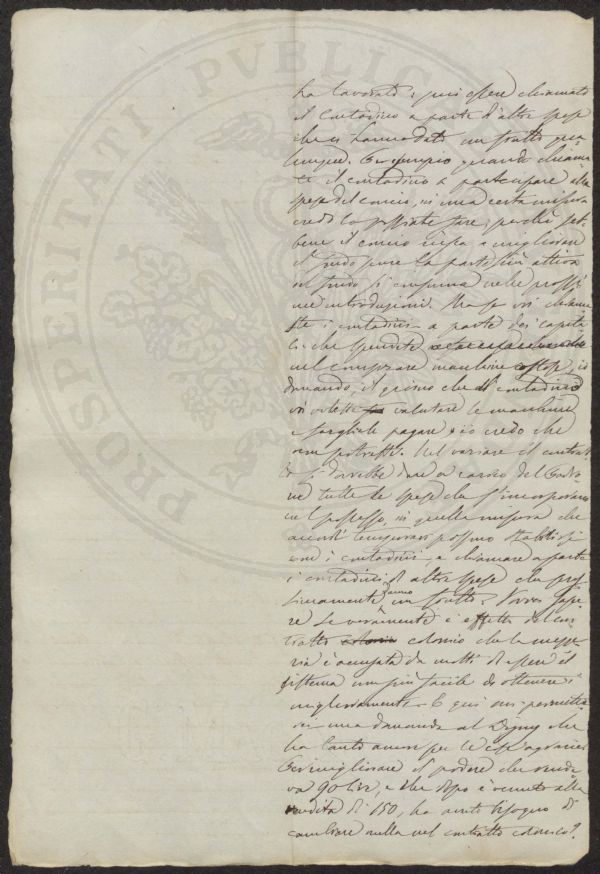 PROSPERITATI PVBLICAE
ha lavorato, può essere chiamato
il contadino a parte d'altre spese
che ci hanno dato un frutto qua
lunque. Per esempio quando chiama
te il contadino a partecipare alla
spesa del concio, in una certa misura
credo lo possiate fare; perchè seb
bene il concio riesca a migliorare
il fondo pure la parte più attiva
del fondo si consuma nelle prossi
me introduzioni. Ma se voi chiama
ste i contadini a parte dei capita
li che spendete
nel comprare macchine io
domando, il giorno che il contadino
vi voleste valutare le macchine
e fargliele pagare io credo che
non potreste. Nel variare il contrat
to si dovrebbe dare a carico del Padro
ne tutte le spese che s'incorporano
nel possesso, in quella misura che
accordi temporari possono stabilirsi
con i contadini, e chiamare a parte
i contadini di altre spese che pros
simamente danno un frutto. Vorrei sape
re se veramente è effetto del con
tratto colonico che la mezze
ria è accusata da molti di essere il
sistema non più facile da ottenere i
miglioramenti. E qui mi permetta
no una domanda al Digny che
ha tanto amore per le cose agrarie
Per migliorare il podere che rende
va 90 lire, e che dopo è venuto alla
rendita di 150, ha avuto bisogno di
cambiare nulla nel contratto colonico?